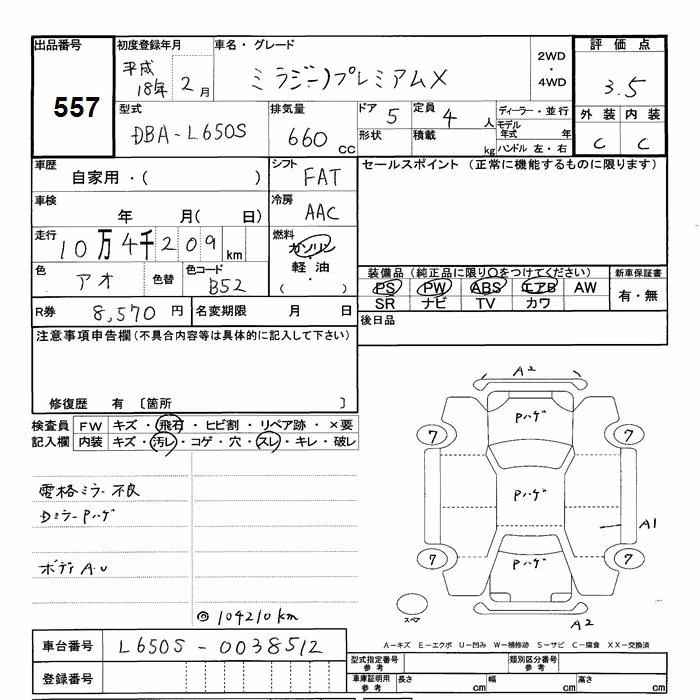 出品番号 初度登録年月 車名・グレード 評価点
557 平成18年2月 ミラジーノプレミアムX 2WD・4WD 3.5
型式 排気量 ドア 5 定員 4人 ディーラー・並行 外装 内装
DBA-L650S 660cc 形状 積載 kg モデル年式 年 C C
ハンドル 左・右
車歴 自家用・( ) シフト FAT セールスポイント (正常に機能するものに限ります)
車検 年 月( 日) 冷房 AAC
走行 10万4千209km 燃料 ガソリン 軽油 ・( )
色 アオ 色替 色コード B52 装備品 (純正品に限り○をつけてください) 新車保証書
PS PW ABS エアB AW 有・無
SR ナビ TV カワ
R券 8,570円 名変期限 月 日 後日品
注意事項申告欄(不具合内容等は具体的に記入して下さい)
修復歴 有 〔箇所 〕
検査員記入欄 FW キズ・飛石・ヒビ割・リペア跡・×要
内装 キズ・汚レ・コゲ・穴・スレ・キレ・破レ
電格ミラー不良
Dミラー Pハゲ
ボディA.U
◎104210km
A2
Pハゲ
7 7
Pハゲ
A1
Pハゲ
7 7
スペア
A2
A-キズ E-エクボ U-凹み W-補修跡 S-サビ C-腐食 XX-交換済
車台番号 L650S-0038512
登録番号
型式指定番号 参考 類別区分番号 参考
車庫証明用 参考 長さ cm 幅 cm 高さ cm